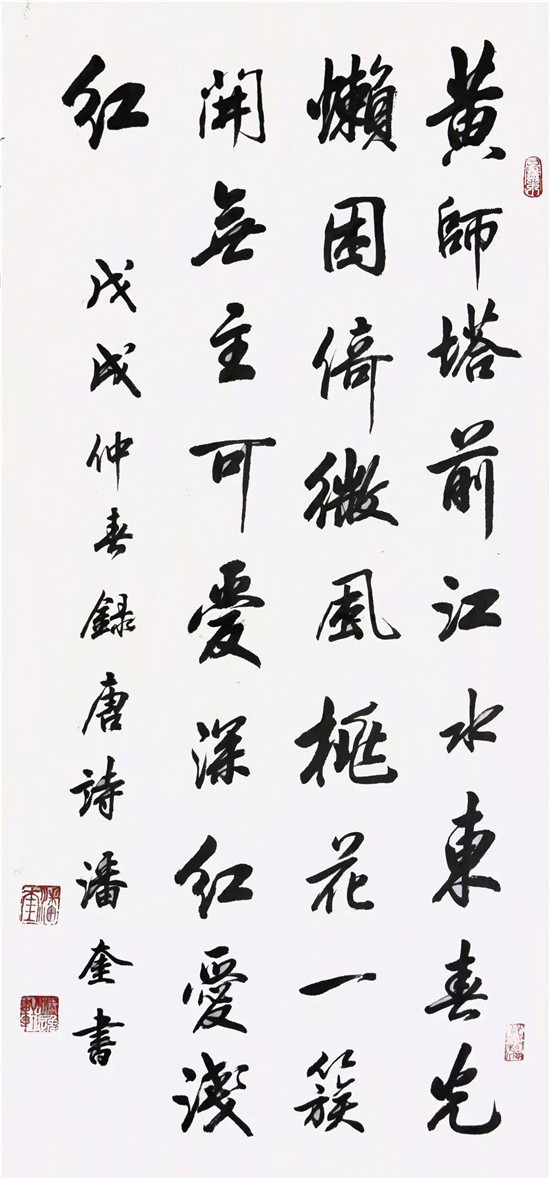 黃師塔前江水東春光
懶困倚微風桃花一簇
開無主可愛深紅愛淺
紅
戊戌仲春錄唐詩潘奎書